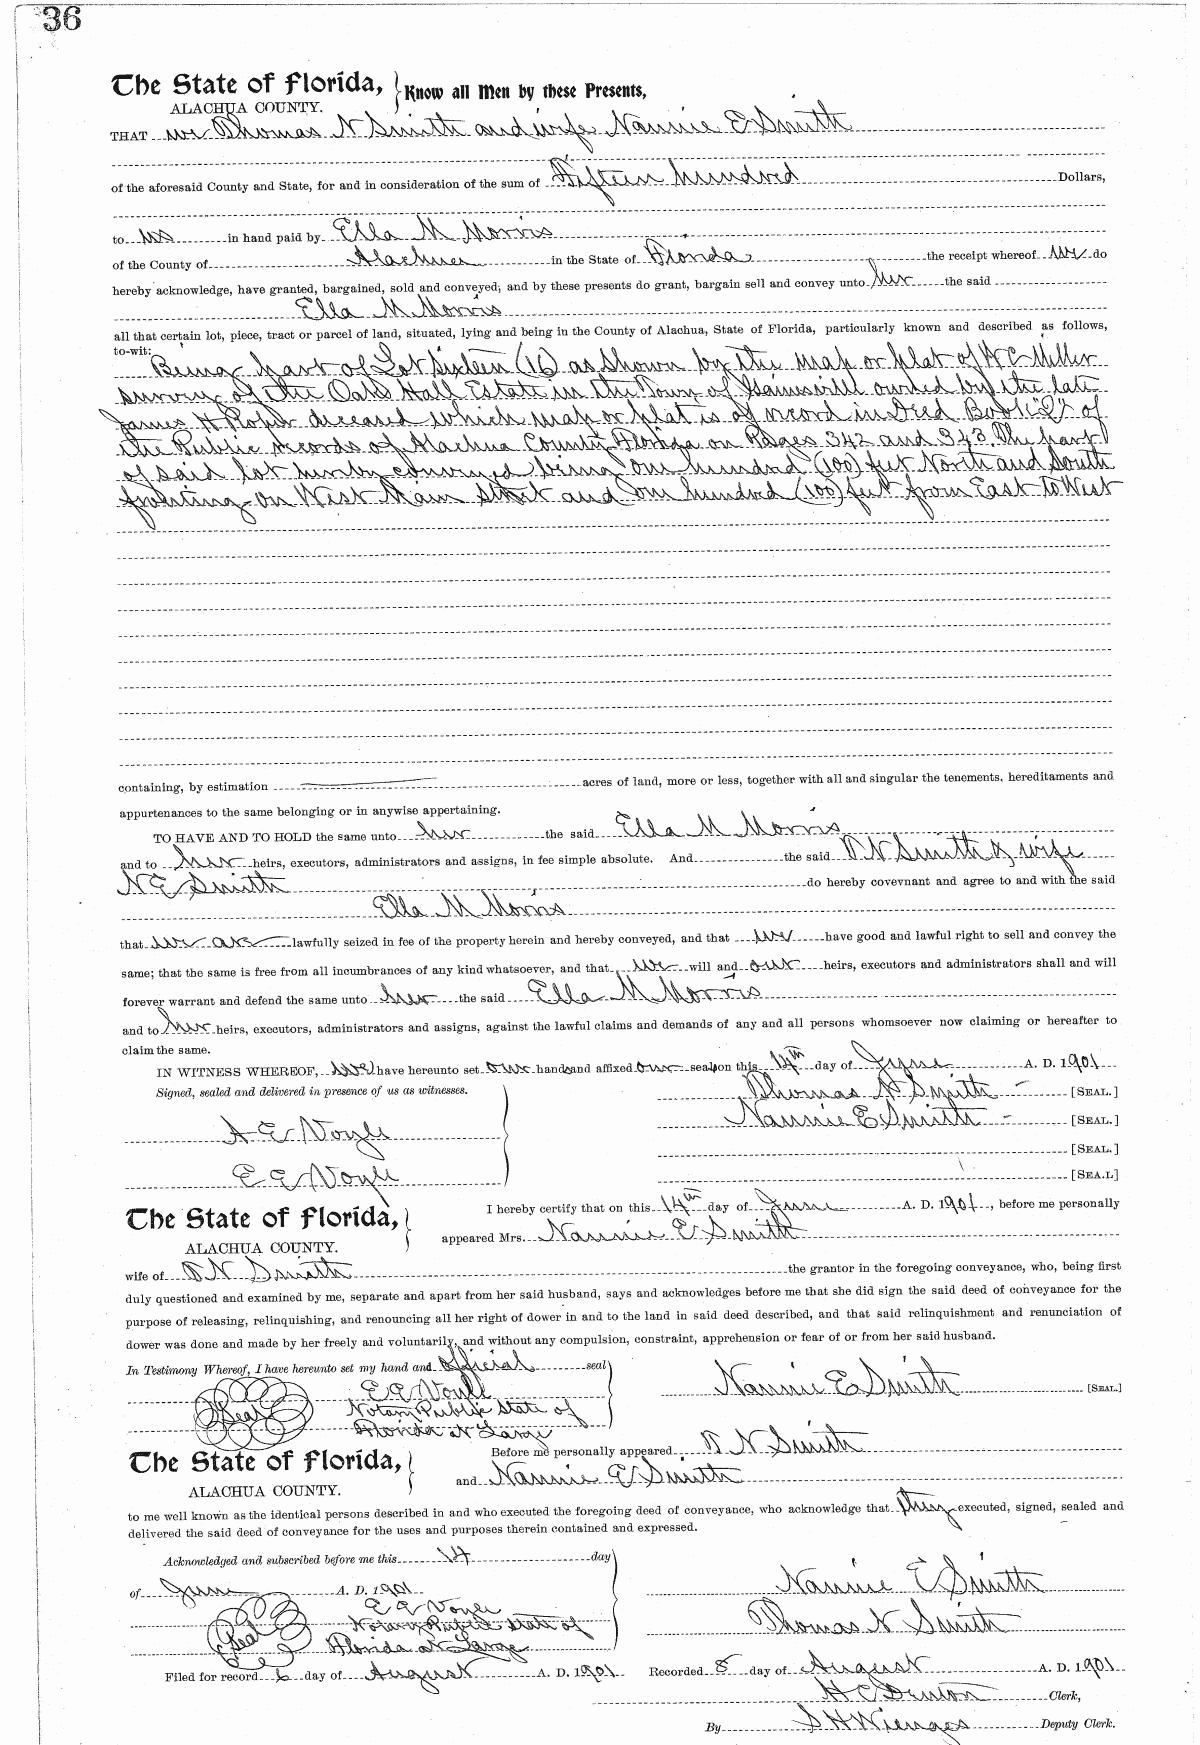 36
The State of Florida,
ALACHUA COUNTY.
Know all Men by these Presents,
THAT we Thomas N Smith and wife Nannie E Smith
of the aforesaid County and State, for and in consideration of the sum of Fifteen hundred Dollars,
to us in hand paid by Ella M Morris
of the County of Alachua in the State of Florida the receipt whereof we do
hereby acknowledge, have granted, bargained, sold and conveyed; and by these presents do grant, bargain sell and convey unto her the said
Ella M Morris
all that certain lot, piece, tract or parcel of land, situated, lying and being in the County of Alachua, State of Florida, particularly known and described as follows,
to-wit:
Being part of Lot Sixteen (16) as shown by the map or plat of H C Miller
survey of the Oak Hall Estate in the Town of Gainesville owned by the late
James H Roper deceased which map or plat is of record in Deed Book of
the Public records of Alachua County Florida on Pages 342 and 343 The part
of said lot hereby conveyed being one hundred (100) feet North and South
fronting on West Main Street and one hundred (100) feet from East to West
containing, by estimation acres of land, more or less, together with all and singular the tenements, hereditaments and
appurtenances to the same belonging or in anywise appertaining.
TO HAVE AND TO HOLD the same unto her the said Ella M Morris
and to her heirs, executors, administrators and assigns, in fee simple absolute. And the said T N Smith & wife
N E Smith do hereby covevnant and agree to and with the said
Ella M Morris
that we are lawfully seized in fee of the property herein and hereby conveyed, and that we have good and lawful right to sell and convey the
same; that the same is free from all incumbrances of any kind whatsoever, and that we will and our heirs, executors and administrators shall and will
forever warrant and defend the same unto her the said Ella M Morris
and to her heirs, executors, administrators and assigns, against the lawful claims and demands of any and all persons whomsoever now claiming or hereafter to
claim the same.
IN WITNESS WHEREOF, we have hereunto set our hands and affixed our seals on this 14th day of June A. D. 1901
Signed, sealed and delivered in presence of us as witnesses.
Thomas N Smith [SEAL.]
Nannie E Smith [SEAL.]
A E Voyle
[SEAL.]
E E Voyle
[SEA.L]
The State of Florida,
ALACHUA COUNTY.
I hereby certify that on this 14th day of June A. D. 1901, before me personally
appeared Mrs. Nannie E Smith
wife of T N Smith the grantor in the foregoing conveyance, who, being first
duly questioned and examined by me, separate and apart from her said husband, says and acknowledges before me that she did sign the said deed of conveyance for the
purpose of releasing, relinquishing, and renouncing all her right of dower in and to the land in said deed described, and that said relinquishment and renunciation of
dower was done and made by her freely and voluntarily, and without any compulsion, constraint, apprehension or fear of or from her said husband.
In Testimony Whereof, I have hereunto set my hand and official seal
E E Voyle
Nannie E Smith [SEAL.]
Seal
Notary Public State of
Florida at Large
The State of Florida,
ALACHUA COUNTY.
Before me personally appeared T N Smith
and Nannie E Smith
to me well known as the identical persons described in and who executed the foregoing deed of conveyance, who acknowledge that they executed, signed, sealed and
delivered the said deed of conveyance for the uses and purposes therein contained and expressed.
Acknowledged and subscribed before me this 14 day
of June A. D. 1901
Nannie E Smith
E E Voyle
Notary Public State of
Thomas N Smith
Seal
Florida at Large
Filed for record 6 day of August A. D. 1901 Recorded 8 day of August A. D. 1901
H C Denton Clerk,
By S H Wienges Deputy Clerk.